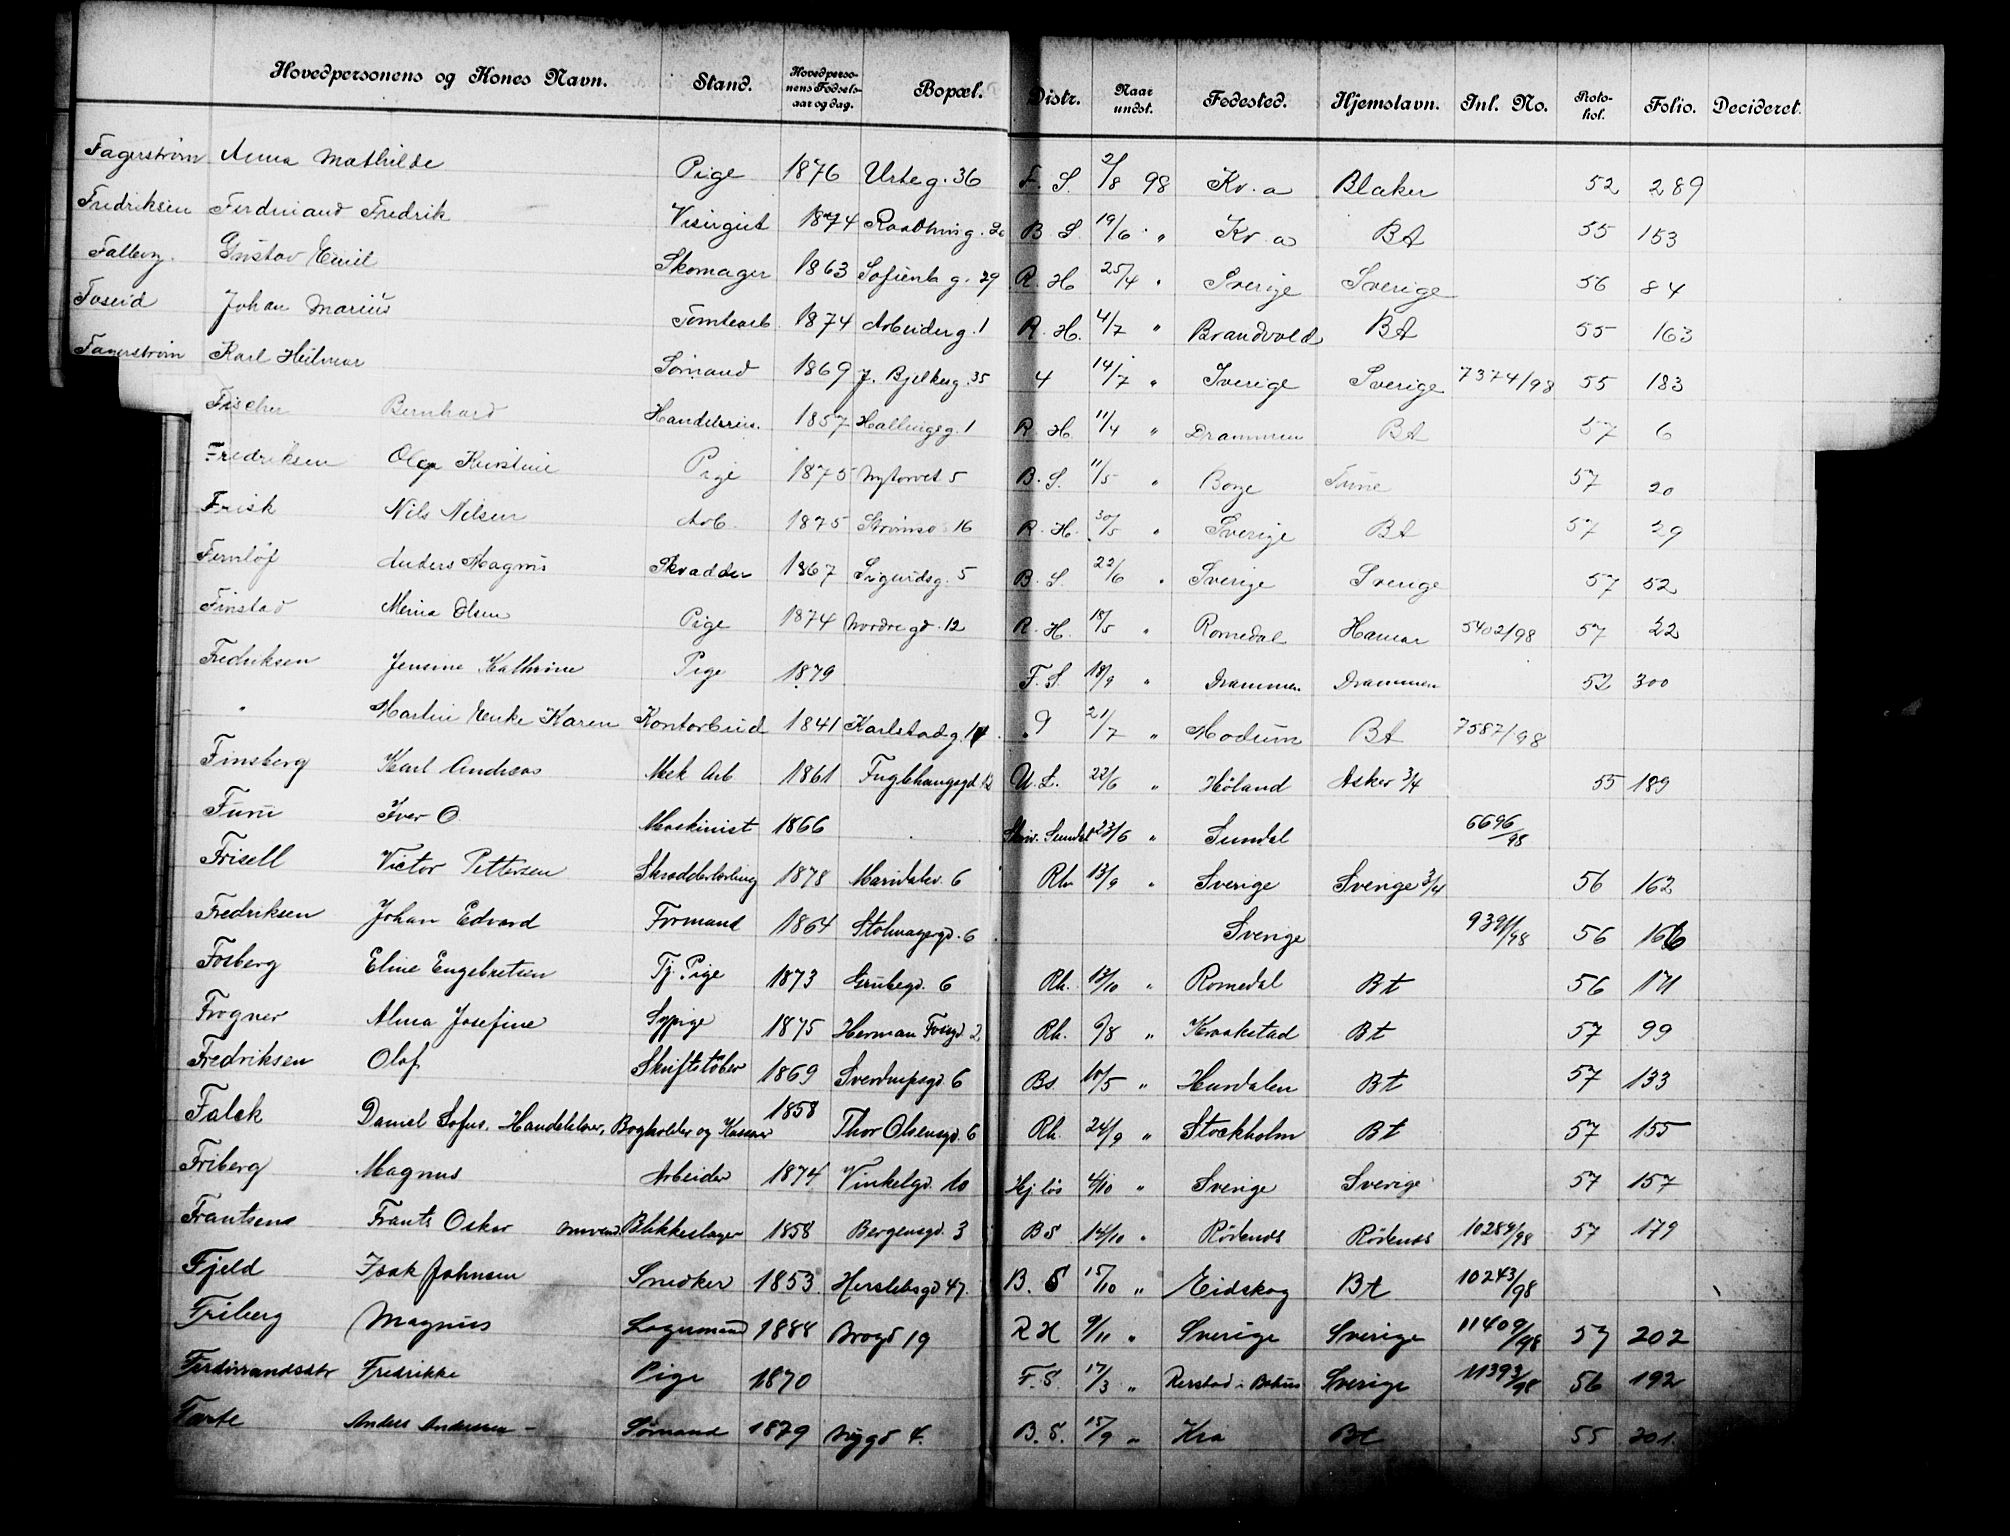 Hovedpersonens og Kones Navn. Stand. Hovedperso-nens Fødsels-aar og dag. Bopæl. Distr. Naar undst. Fødested. Hjemstavn. Inl. No. Proto-kol. Folio. Decideret.
Fagerstrøm Anna Mathilde Pige 1876 Urteg. 36 F. S. 2/8 98 Kr.a Blaker 52 289
Fredriksen Ferdinand Fredrik Visirgut 1874 B S. 19/6 " Kr.a Bt 55 153
Falberg. Gustav Emil Skomager 1863 Sofienb g. 29 R. H 25/4 " Sverige Sverige 56 84
Foseid Johan Marius Tomtearb. 1874 Arbeiderg. 1 R. H. 4/7 " Brandvold Bt 55 163
Fagerstrøm Karl Hilmar Sømand 1869 J. Bjelkesg. 35 4 14/7 " Sverige Sverige 7374/98 55 183
Fischer Bernhard 1857 Hallingsg. 1 R. H. 11/4 " Drammen Bt 57 6
Fredriksen Olga Kirstine Pige 1875 Nytorvet 5 B. S. 11/5 " Borge Tune 57 20
Frisk Nils Nilsen Arb. 1875 Strømsv. 16 R. H. 30/5 " Sverige Bt 57 29
Fernlöf Anders Magnus Skrædder 1867 Sigurdsg. 5 B. S. 22/6 " Sverige Sverige 57 52
Finstad Mina Olsen Pige 1874 Nordregd. 12 R. H. 18/5 " Romedal Hamar 5402/98 57 22
Fredriksen Jensine Kathrine Pige 1879 F. S. 18/9 " Drammen Drammen 52 300
" Martin Enke Karen Kontorbud 1841 Karlstadg. 14 9 21/7 " Modum Bt 7587/98
Finsberg Karl Andreas Mek Arb 1861 Fuglehaugsgd. 12 U. L. 22/6 " Høland Asker 3/4 55 189
Furu Iver O Maskinist 1866 Skriv. Sundal 23/6 " Sundal 6696/98
Frisell Victor Pettersen Skrædderlærling 1878 Maridalsv. 6 Rh. 13/9 " Sverige Sverige 3/4 56 162
Fredriksen Johan Edvard Formand 1864 Stolmagergd. 6 Sverige 9391/98 56 166
Fosberg Eline Engebretsen Tj. Pige 1873 Grubegd. 6 Rh. 13/10 " Romedal Bt 56 171
Frogner Alma Josefine Sypige 1875 Herman Fossgd 2 Rh. 6/8 " Kraakstad Bt 57 99
Fredriksen Olaf Skriftstøber 1869 Sverdrupsgd 6 Bs. 10/5 " Hurdalen Bt 57 133
Falck Daniel Sofus. Handelsbev, Bogholder og Kasserer 1858 Thor Olsensgd. 6 Rh. 24/9 " Stockholm Bt 57 155
Friberg Magnus Arbeider 1874 Vinkelgd. 10 Hj.løs 4/10 " Sverige Sverige 57 157
Frantsens Frants Oskar Blikkeslager 1858 Bergensgd. 3 B S 14/10 " Rødenes Rødenes 10284/98 57 179
Fjeld Isak Johnsen Snedker 1853 Herslebsgd 47. B. S 15/10 " Eidskog Bt 10243/98
Friberg Magnus Lagermand 1888 Brogd 19 R H 9/11 " Sverige Sverige 11409/98 57 202
Ferdinandsdtr Fredrikke Pige 1870 F. S. 17/3 " Sverige 11393/98 56 192
Anders Andersen – Sømand 1879 Nygd 4. B. S. 15/9 " Kra Bt 55 201.